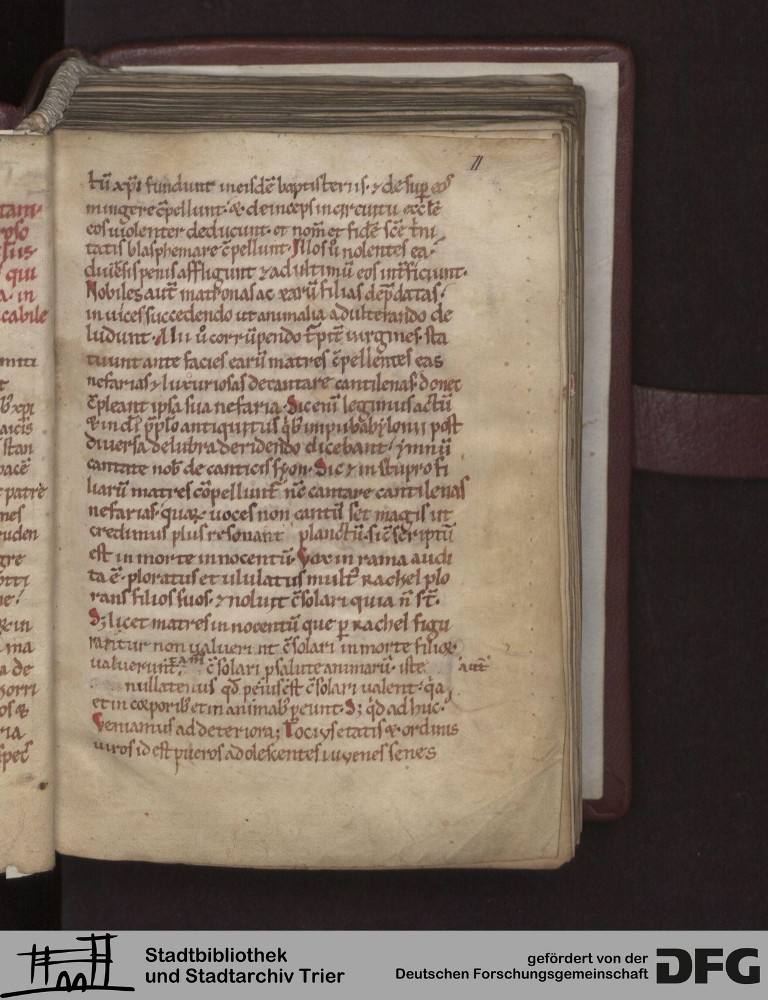 11
tū xp̄i fundunt in eisdē baptisteriis· ⁊ de sup̱ eos
mingere c̄pellunt· & deinceps in circuitu eccl̄e
eos violenter deducunt· et nom̄ et fidē sc̄e t̄ni
tatis blasphemare c̄pellunt· Illos ů nolentes ea·
diūsis penis affligunt ⁊ ad ultimū eos int̄ficiunt·
Nobiles aut̄ matronas ac earū filias dep̄datas·
in vices succedendo ut animalia adulterando de
ludunt· Alii ů corrūpendo t̄pt̄e virgines· sta
tuunt ante facies earū matres c̄pellentes eas
nefarias ⁊ luxuriosas decantare cantilenas· donec
c̄pleant ipsa sua nefaria· Sic enī legimus actū
& in dī pp̄lo antiquitus qb̄ impii babylonii post
diversa delubra deridendo dicebant· ẏmnū
cantate nob̄ de canticis syon· Sic ⁊ in stupro fi
liarū matres cōpellunt̄ nc̄ cantare cantilenas
nefarias· quaꝝ voces non cantū set magis ut
credimus plus resonant planctū· sic̄ scriptū
est in morte innocentū· Vox in rama audi
ta ē· ploratus et ululatus mult̄ Rachel plo
rans filios suos· ⁊ noluit c̄solari quia n̄ st̄·
S; licet matres innocentū que ꝑ Rachel figu
rantur non valueri nt c̄solari in morte filioꝝ
valuerunt tam c̄solari p salute animarū· iste aut̄
nullatenus qd̄ peius est c̄solari valent· q̇a
et in coꝛporib̄ et in animab̄ ꝑeunt· S; qd̄ ad huc·
Veniamus ad deteriora; Tociꝰ etatis & ordinis
viros id est pueros adolescentes iuvenes senes
Stadtbibliothek
und Stadtarchiv Trier
gefördert von der
Deutschen Forschungsgemeinschaft
DFG